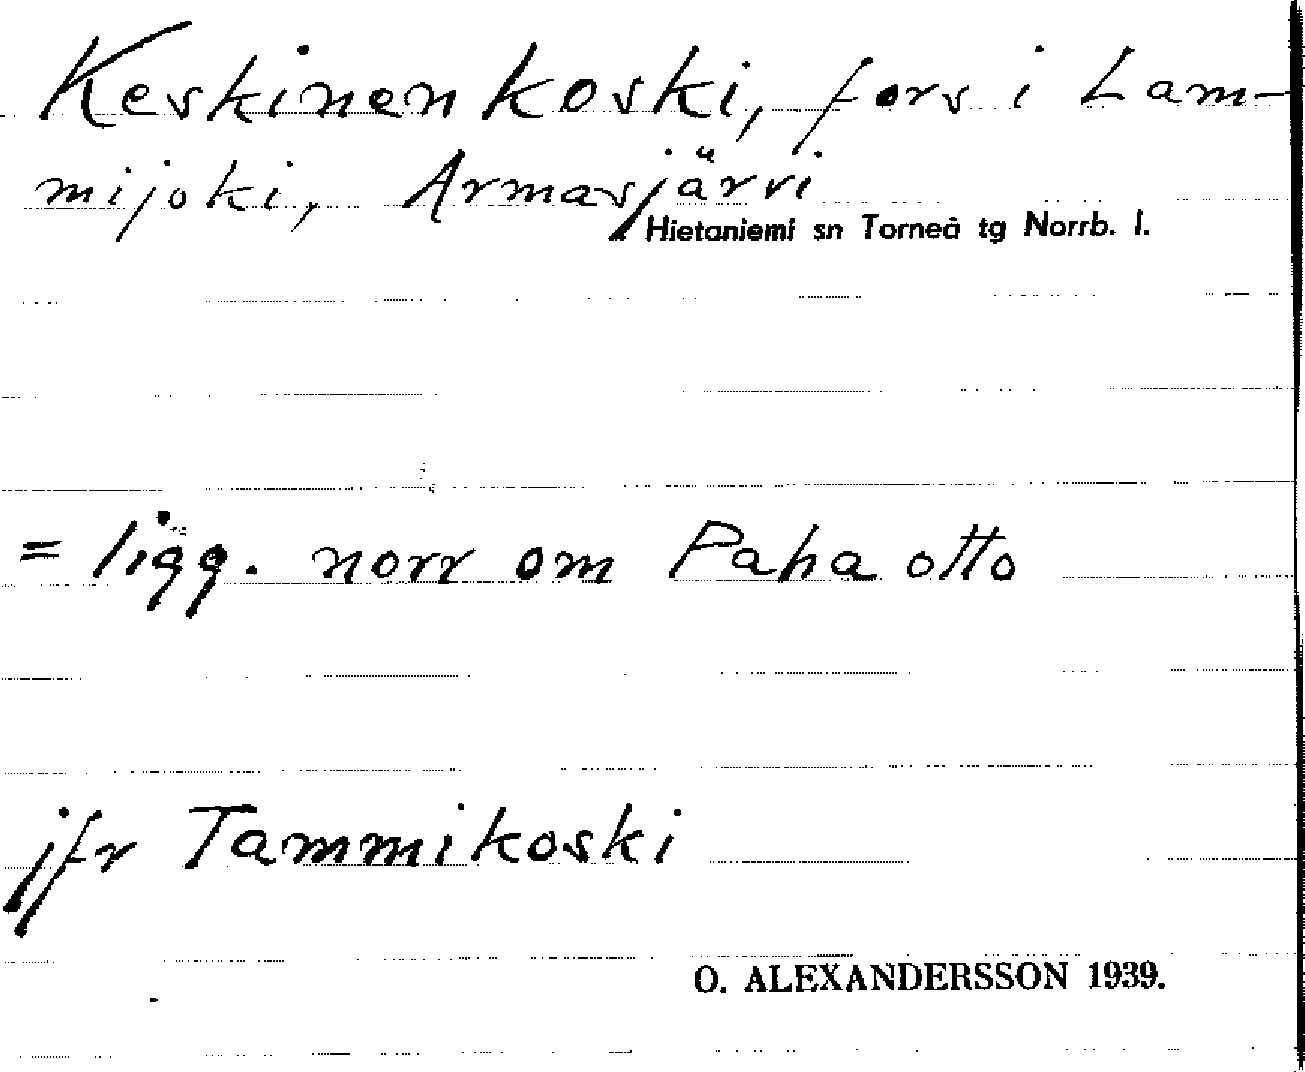 Keskinenkoski, fors i Lam-
mijoki, Armasjärvi
Hietaniemi sn Torneå tg Norrb. l.
= ligg. norr om Paha otto
jfr Tammikoski
O. ALEXANDERSSON 1939.